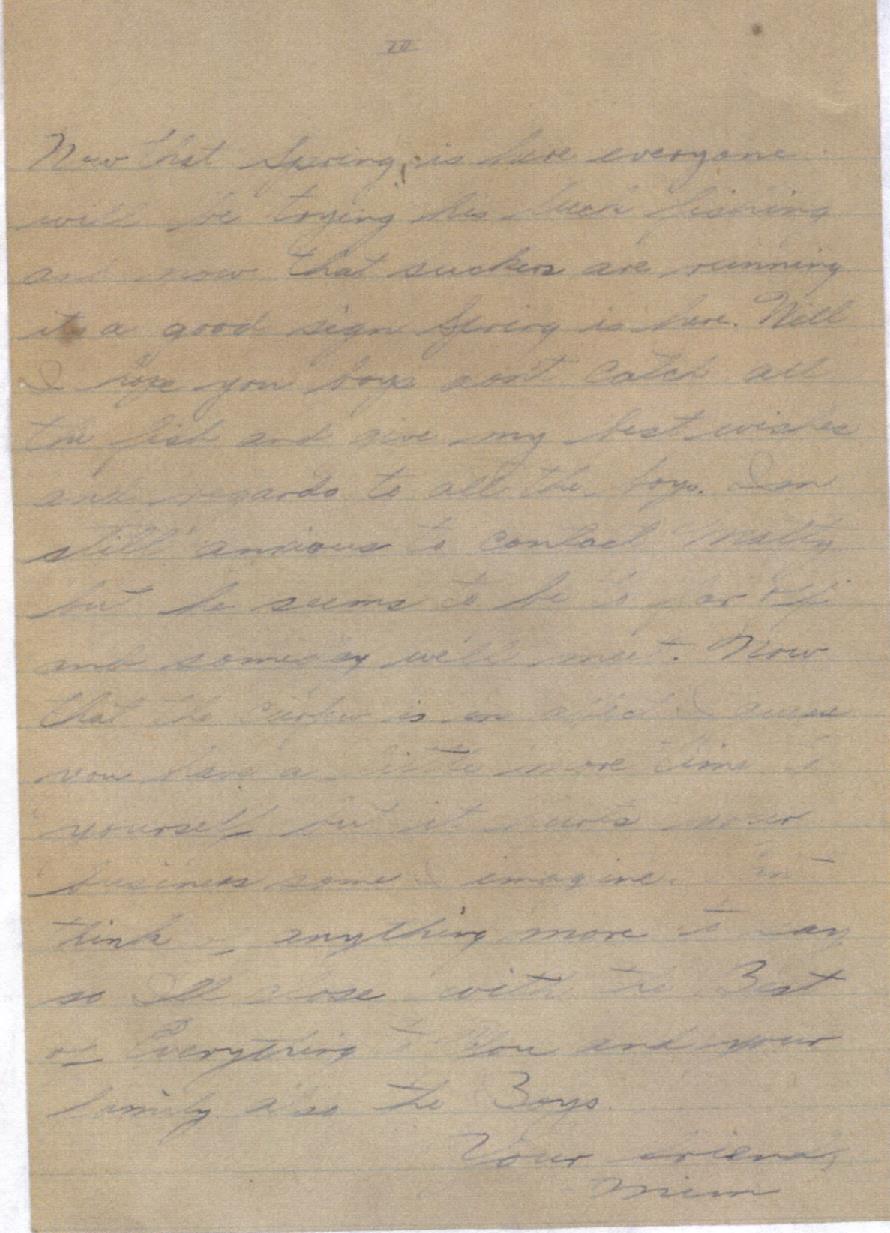 IV
Now that Spring, is here everyone
will be trying his luck fishing
and now that suckers are running
its a good sign Spring is here. Well
I hope you boys don't catch all
the fish and give my best wishes
and regards to all the boys. I'm
still anxious to contact Matty
but he seems to be to far off
and someday we'll meet. Now
that the curfew is in affect I guess
you have a little more time to
yourself but it hurts your
business some I imagine.
think of anything more to say
so I'll close with the Best
of Everything to You and your
family also the Boys.
Your friend,